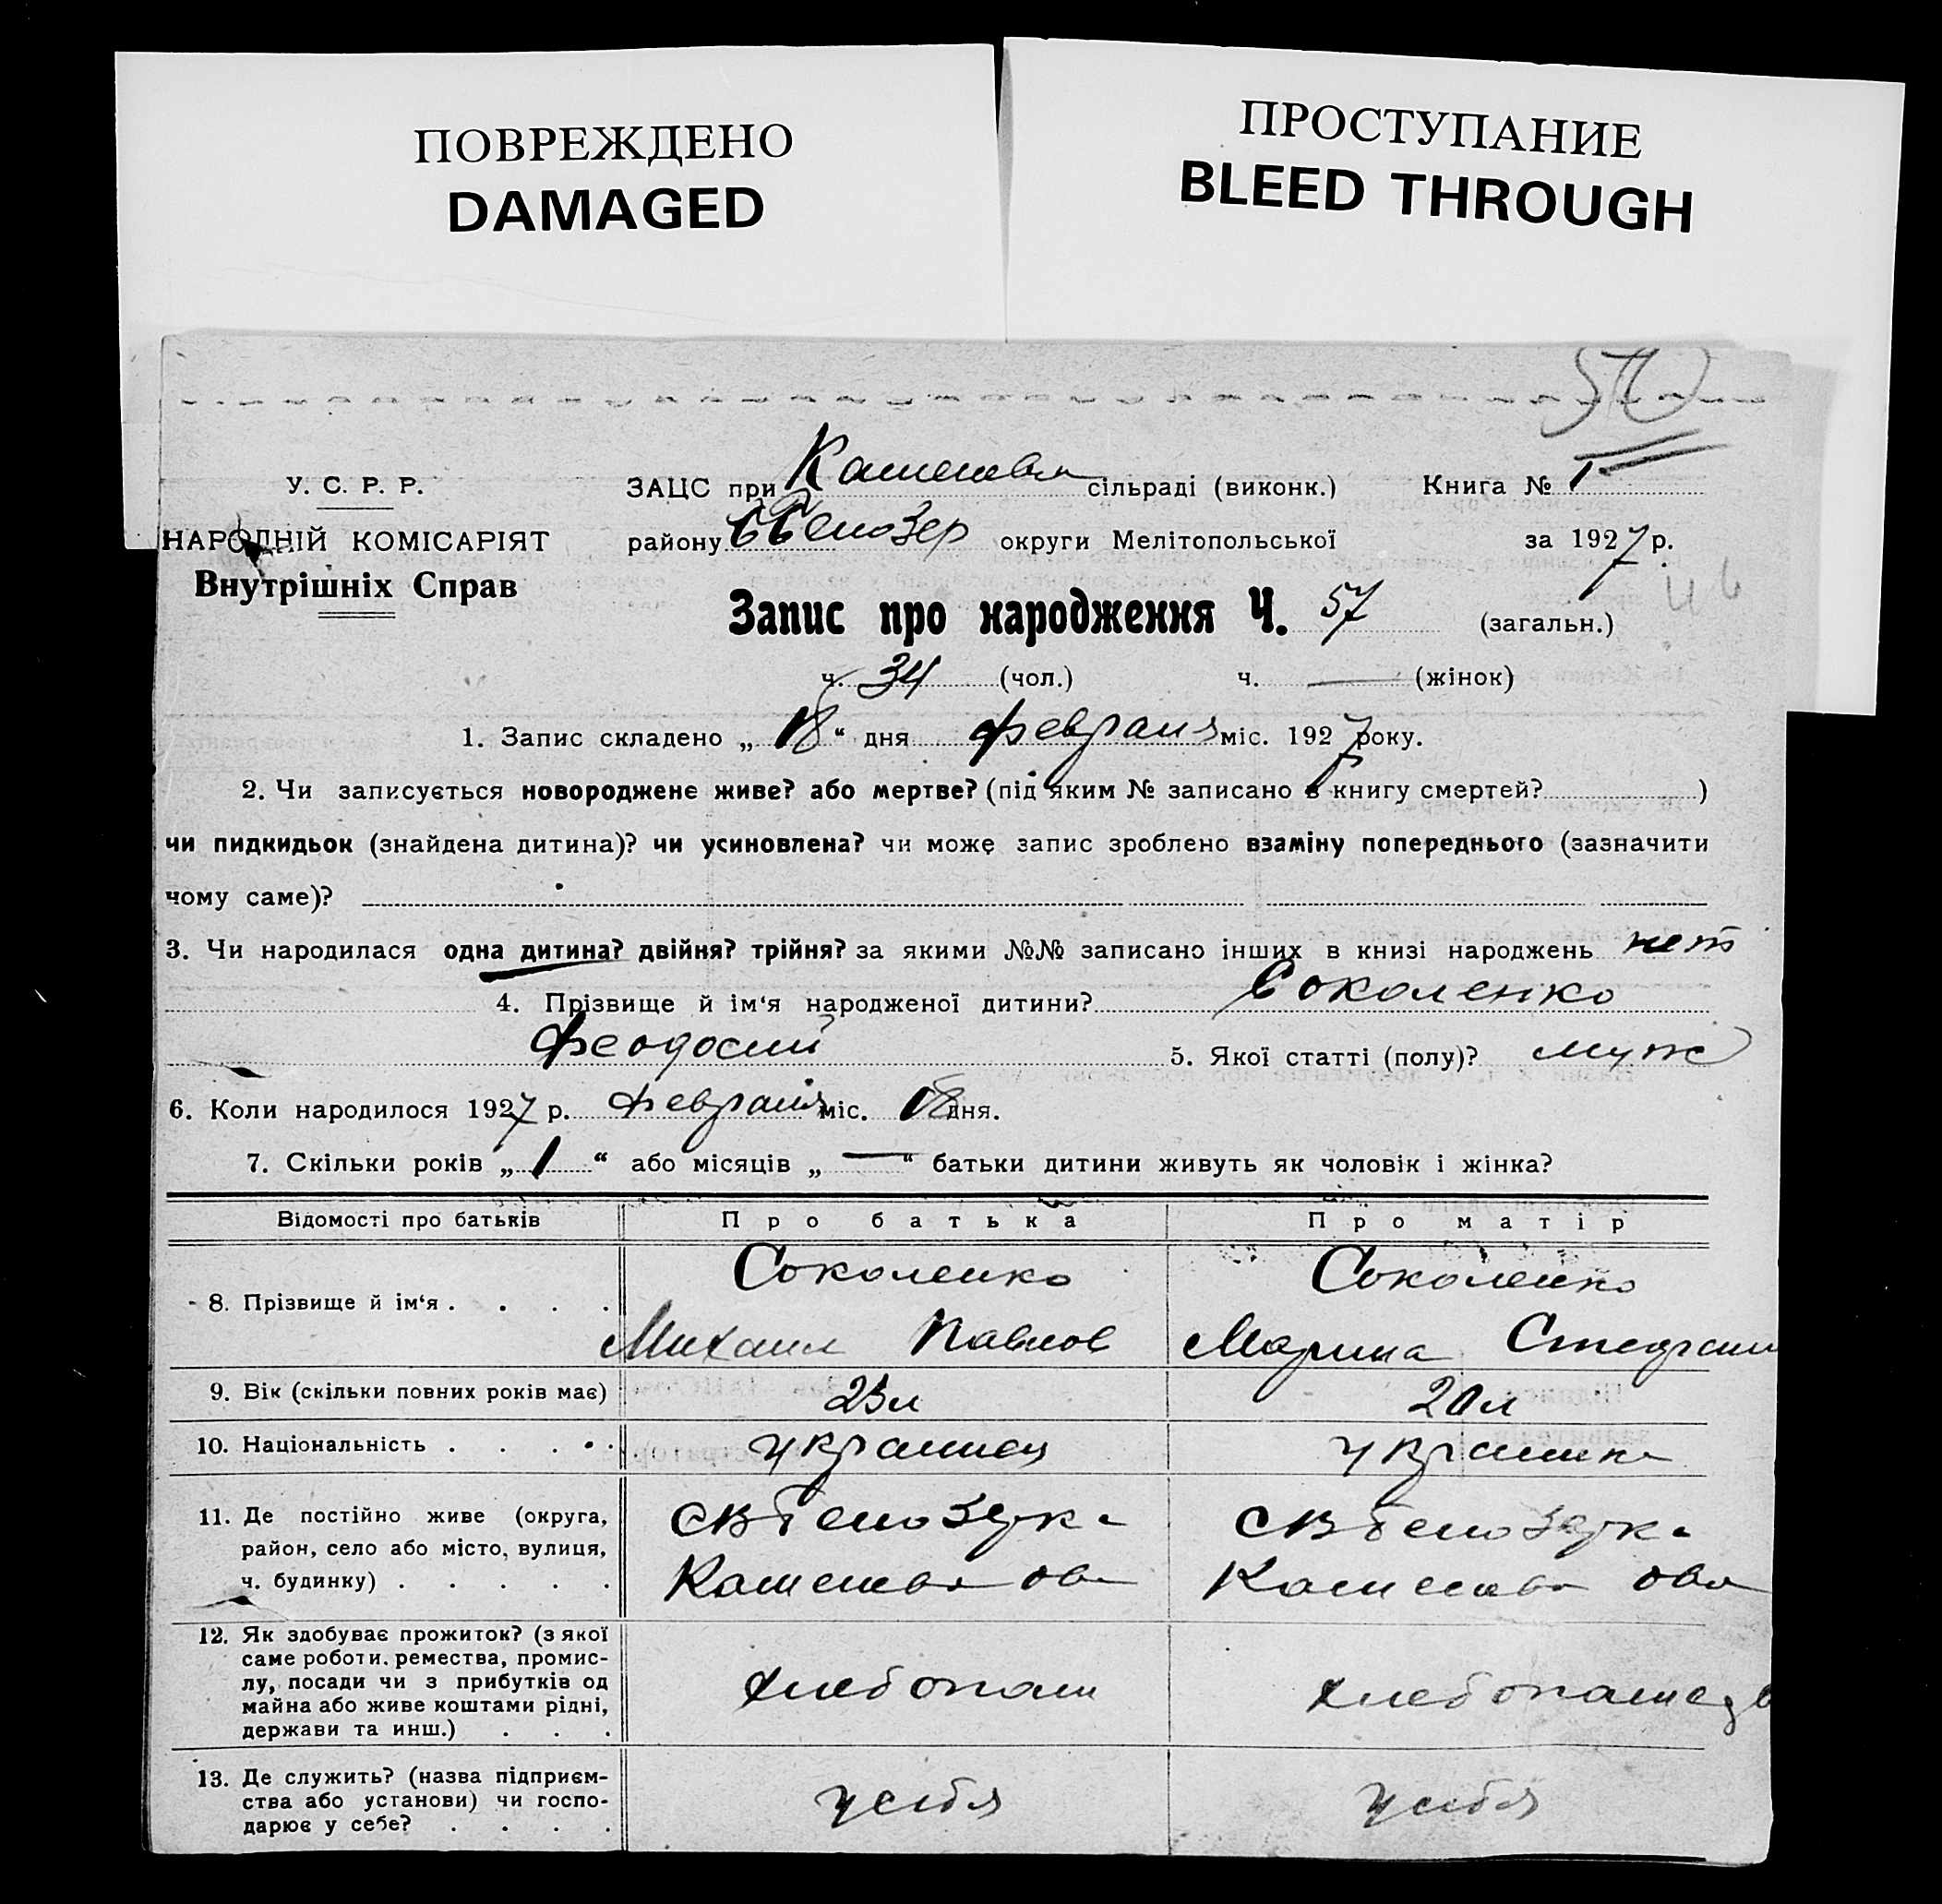 ПОВРЕЖДЕНО
DAMAGED
ПРОСТУПАНИЕ
BLEED THROUGH
У. С. Р. Р.
НАРОДНІЙ КОМІСАРІЯТ
Внутрішніх Справ
ЗАЦС при сільраді (виконк.) Книга № 1
району округи Мелітопольської за 1927 р.
Запис про народження Ч. 57 (загальн.)
ч. 34 (чол.) ч. — (жінок)
1. Запис складено „ 18 “ дня февраля міс. 1927 року.
2. Чи записується новороджене живе? або мертве? (під яким № записано в книгу смертей? )
чи пидкидьок (знайдена дитина)? чи усиновлена? чи може запис зроблено взаміну попереднього (зазначити
чому саме)?
3. Чи народилася одна дитина? двійня? трійня? за якими №№ записано інших в книзі народжень нет
4. Прізвище й ім‘я народженої дитини? Соколенко
Феодосий 5. Якої статті (полу)? муж
6. Коли народилося 1927 р. февраля міс. 18 дня.
7. Скільки років „ 1 “ або місяців „ — “ батьки дитини живуть як чоловік і жінка?
Відомості про батьків Про батька Про матір
8. Прізвище й ім‘я . . . . Соколенко Соколенко
Михаил Павлов Марина
9. Вік (скільки повних років має) 23 л 20 л
10. Національність . . . . украинец украинка
11. Де постійно живе (округа,
район, село або місто, вулиця,
ч. будинку) . . . . .
12. Як здобуває прожиток? (з якої
саме роботи, ремества, промис-
лу, посади чи з прибутків од
майна або живе коштами рідні,
держави та инш.) . . .
хлебопаш
13. Де служить? (назва підприєм-
ства або установи) чи госпо-
дарює у себе? . . . .
у себя у себя